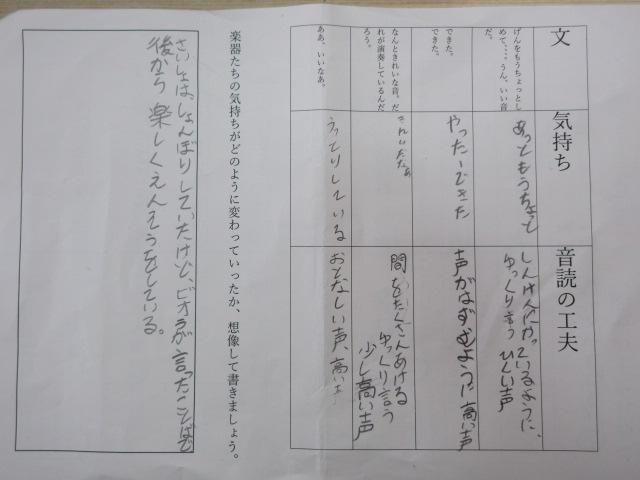 文
気持ち
音読の工夫
げんをもうちょっとし
めて、…、うん、いい音
だ。
あっともうちょっと
しんけんにかっているように、
ゆっくり言う ひくい声
できた。
できた。
やったーできた
声がはずむように 高い声
なんときれいな音。だ
れが演奏しているんだ
ろう。
きれいだなあ
間をたくさんあける
ゆっくり言う
少し高い声
ああ、いいなあ。
うっとりしている
おとなしい声、高い
楽器たちの気持ちがどのように変わっていったか、想像して書きましょう。
さいしょは、しょんぼりしていたけど、ビオラが言ったことばで
後から楽しくえんそうをしている。